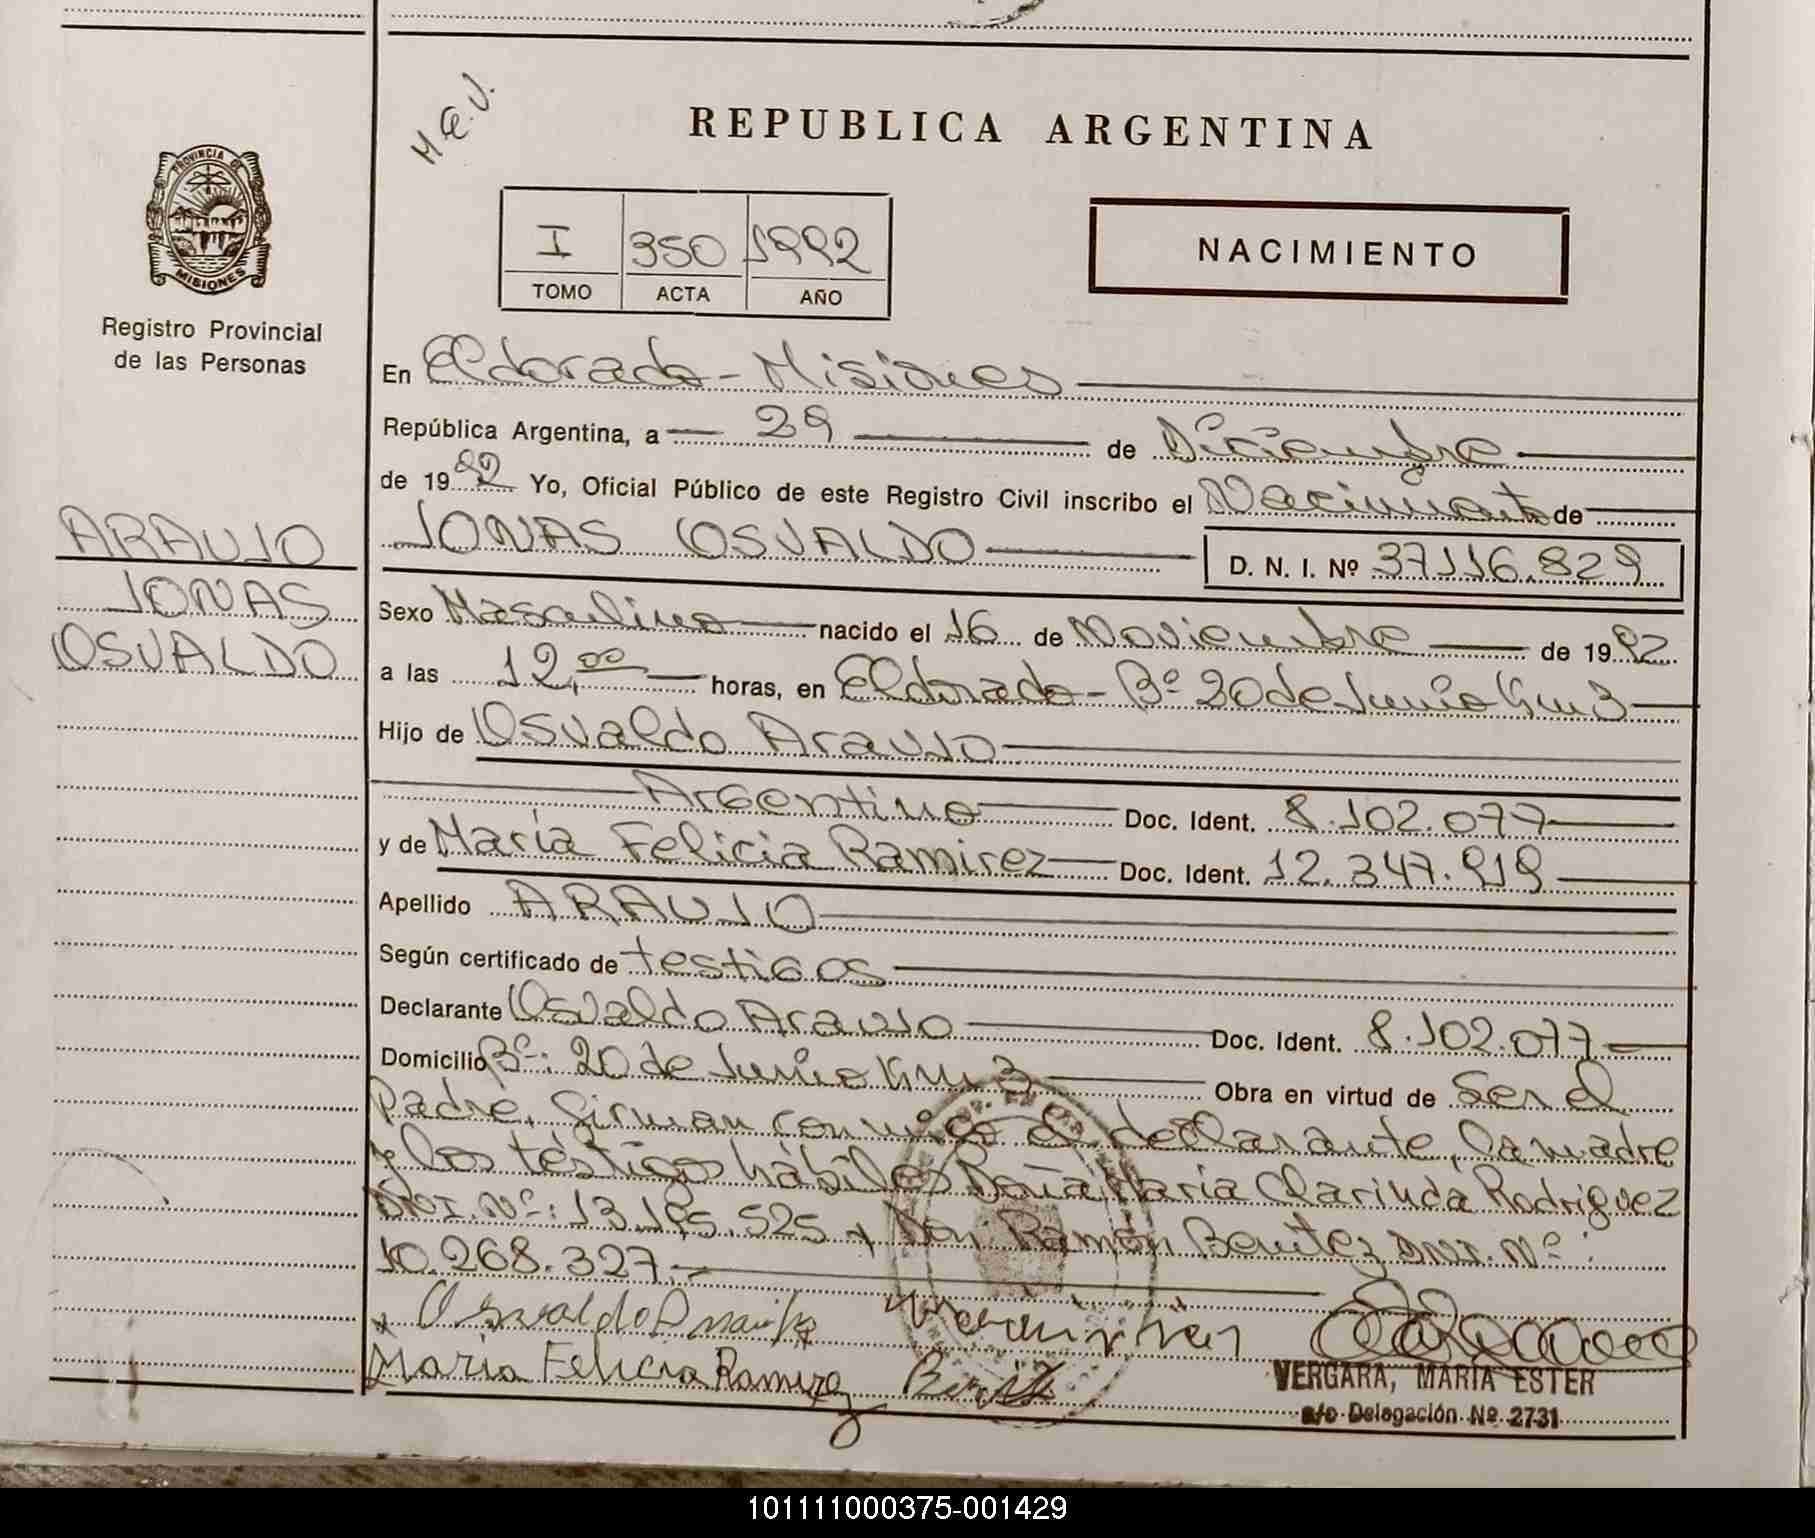 H.E.V.
REPUBLICA ARGENTINA
PROVINCIA DE
MISIONES
Registro Provincial
de las Personas
I 350 1992
TOMO ACTA AÑO
NACIMIENTO
En Eldorado - Misiones
República Argentina, a 29 de Diciembre
de 1992 Yo, Oficial Público de este Registro Civil inscribo el Nacimiento de
JONAS OSVALDO D. N. I. Nº 37116.829
ARAUJO
JONAS
OSVALDO
Sexo Masculino nacido el 16 de Noviembre de 1992
a las 12,00 horas, en Eldorado - Bº 20 de Junio Km 3
Hijo de Osvaldo Araujo
Argentino Doc. Ident. 8.102.077
y de María Felicia Ramirez Doc. Ident. 12.347.919
Apellido ARAUJO
Según certificado de testigos
Declarante Osvaldo Araujo Doc. Ident. 8.102.077
Domicilio Bº: 20 de Junio Km 3 Obra en virtud de Ser el
Padre, firman conmigo el declarante, la madre
y los testigos hábiles Doña María Clarinda Rodriguez
DNI. Nº: 13.195.525 y Don Ramón Benitez DNI. Nº:
10.268.327.
Osvaldo
María Felicia Ramirez
VERGARA, MARIA ESTER
a/c Delegación Nº 2731
101111000375-001429